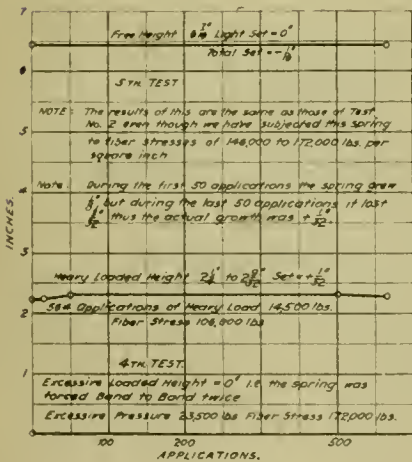 7
Free Height 6 7/16" Light Set = 0"
Total Set = - 1/16"
6
5TH TEST
NOTE: The results of this are the same as those of Test
No. 2 even though we have subjected this spring
to fiber stresses of 146,000 to 172,000 lbs. per
square inch
5
4
Note: During the first 50 applications the spring grew
but during the last 50 applications it lost
1/32" thus the actual growth was + 1/32".
INCHES.
3
Heavy Loaded Height 2 1/4" to 2 9/32" Set = + 1/32"
2
564 Applications of Heavy Load 14,500 lbs.
Fiber Stress 106,800 lbs
4TH. TEST.
1
Excessive Loaded Height = 0" i.e. the spring was
forced Band to Band twice
Excessive Pressure 23,500 lbs Fiber Stress 172,000 lbs.
0
100 200 500
APPLICATIONS.